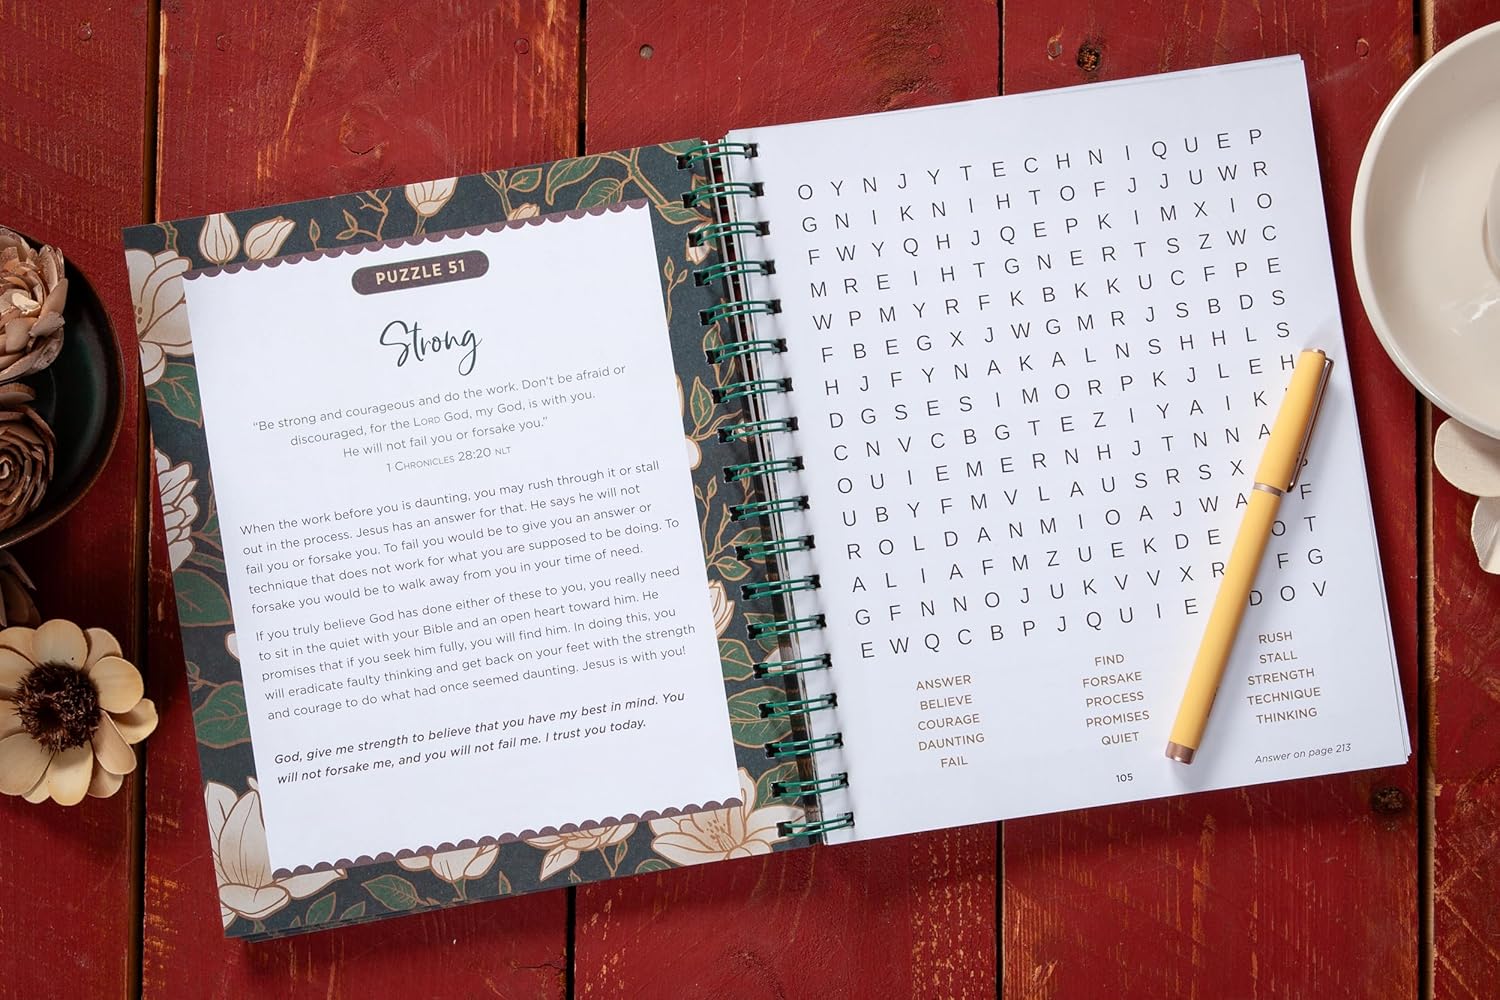 PUZZLE 51
Strong
"Be strong and courageous and do the work. Don't be afraid or
discouraged, for the LORD God, my God, is with you.
He will not fail you or forsake you."
1 CHRONICLES 28:20 NLT
When the work before you is daunting, you may rush through it or stall
out in the process. Jesus has an answer for that. He says he will not
fail you or forsake you. To fail you would be to give you an answer or
technique that does not work for what you are supposed to be doing. To
forsake you would be to walk away from you in your time of need.
If you truly believe God has done either of these to you, you really need
to sit in the quiet with your Bible and an open heart toward him. He
promises that if you seek him fully, you will find him. In doing this, you
will eradicate faulty thinking and get back on your feet with the strength
and courage to do what had once seemed daunting. Jesus is with you!
God, give me strength to believe that you have my best in mind. You
will not forsake me, and you will not fail me. I trust you today.
O Y N J Y T E C H N I Q U E P
G N I K N I H T O F J J U W R
F W Y Q H J Q E P K I M X I O
M R E I H T G N E R T S Z W C
W P M Y R F K B K K U C F P E
F B E G X J W G M R J S B D S
H J F Y N A K A L N S H H L S
D G S E S I M O R P K J L E H
C N V C B G T E Z I Y A I K
O U I E M E R N H J T N N A
U B Y F M V L A U S R S X
R O L D A N M I O A J W A F
A L I A F M Z U E K D E O T
G F N N O J U K V V X R F G
E W Q C B P J Q U I E D O V
ANSWER
BELIEVE
COURAGE
DAUNTING
FAIL
FIND
FORSAKE
PROCESS
PROMISES
QUIET
RUSH
STALL
STRENGTH
TECHNIQUE
THINKING
Answer on page 213
105